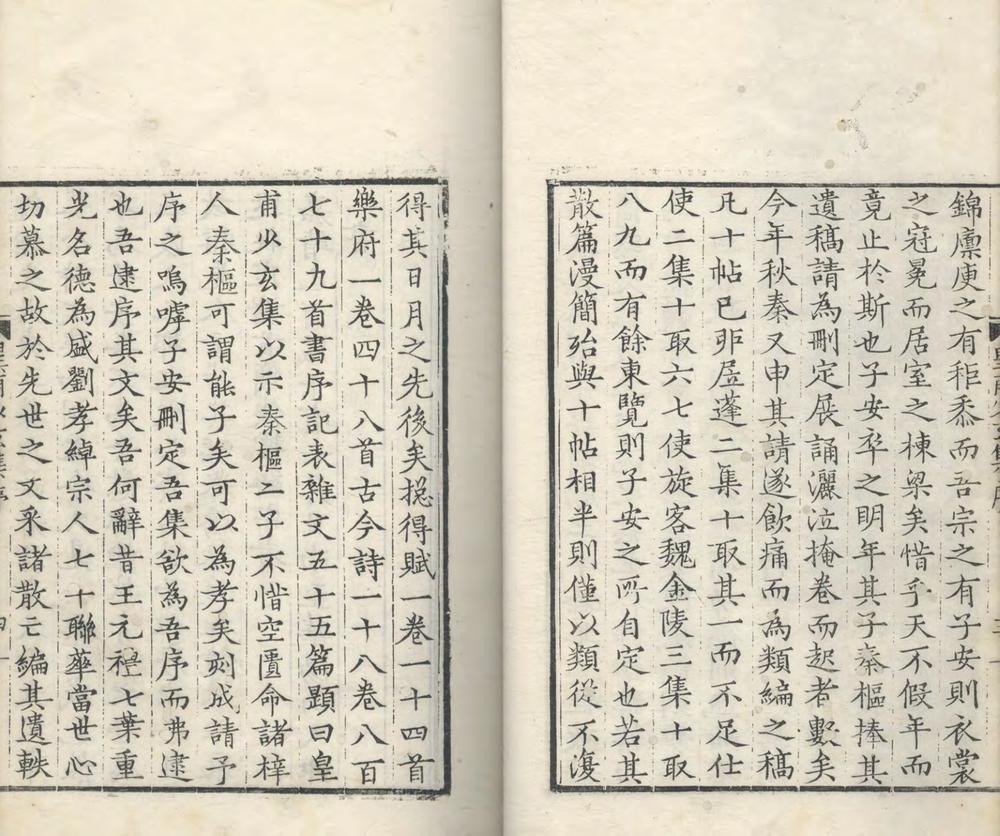 錦廩庾之有秬黍而吾宗之有子安則衣裳
之冠冕而居室之棟梁矣惜乎天不假年而
竟止於斯也子安卒之明年其子秦樞捧其
遺稿請為刪定展誦灑泣掩卷而起者數矣
今年秋秦又申其請遂飲痛而為類編之稿
凡十帖已卭屋蓬二集十取其一而不足仕
使二集十取六七使旋客魏金陵三集十取
八九而有餘東覽則子安之所自定也若其
散篇漫簡殆與十帖相半則僅以類從不復
得其日月之先後矣揔得賦一卷一十四首
樂府一卷四十八首古今詩一十八卷八百
七十九首書序記表雜文五十五篇題曰皇
甫少玄集以示秦樞二子不惜空匱命諸梓
人秦樞可謂能子矣可以為孝矣刻成請予
序之嗚嘑子安刪定吾集欲為吾序而弗逮
也吾逮序其文矣吾何辭昔王元禮七葉重
光名德為盛劉孝綽宗人七十聯華當世心
切慕之故於先世之文采諸散亡編其遺軼